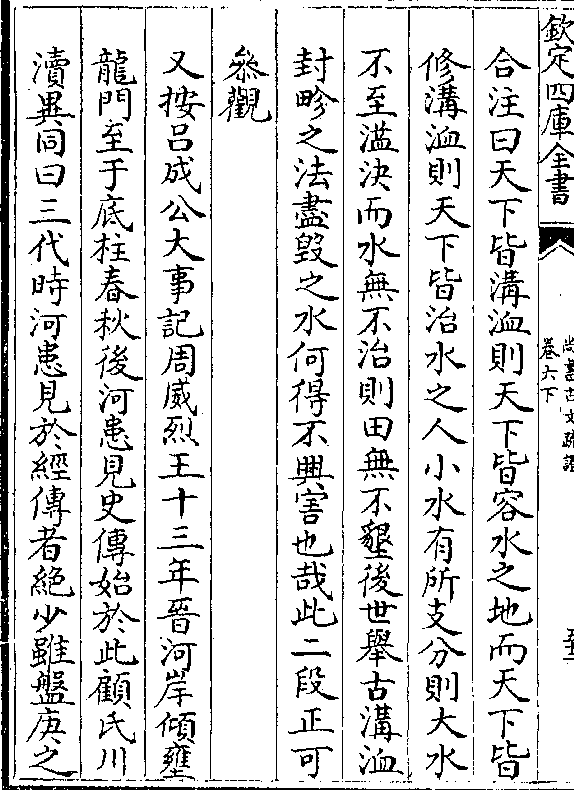 欽定四庫全書
尚書古文疏證
卷六下
合注曰天下皆溝洫則天下皆容水之地而天下皆
修溝洫則天下皆治水之人小水有所支分則大水
不至溢決而水無不治則田無不墾後世舉古溝洫
封畛之法盡毀之水何得不興害也哉此二段正可
叅觀
又按吕成公大事記周威烈王十三年晉河岸傾壅
龍門至于底柱春秋後河患見史傳始於此顧氏川
瀆異同曰三代時河患見於經傳者絶少雖盤庚之